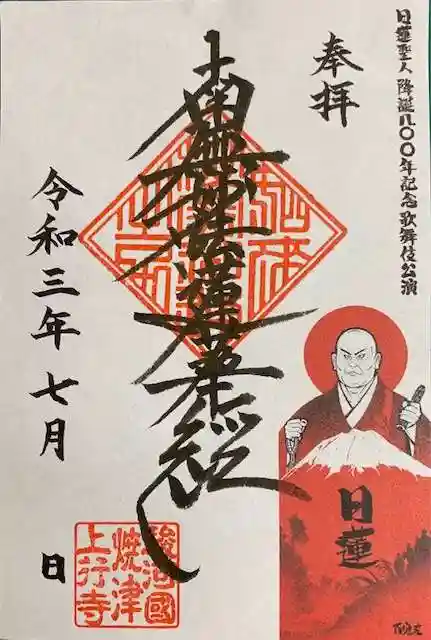 日蓮聖人 降誕八〇〇年記念 歌舞伎公演
奉拝
南無妙法蓮華経
令和三年七月
日
駿河國
焼津
上行寺
日蓮